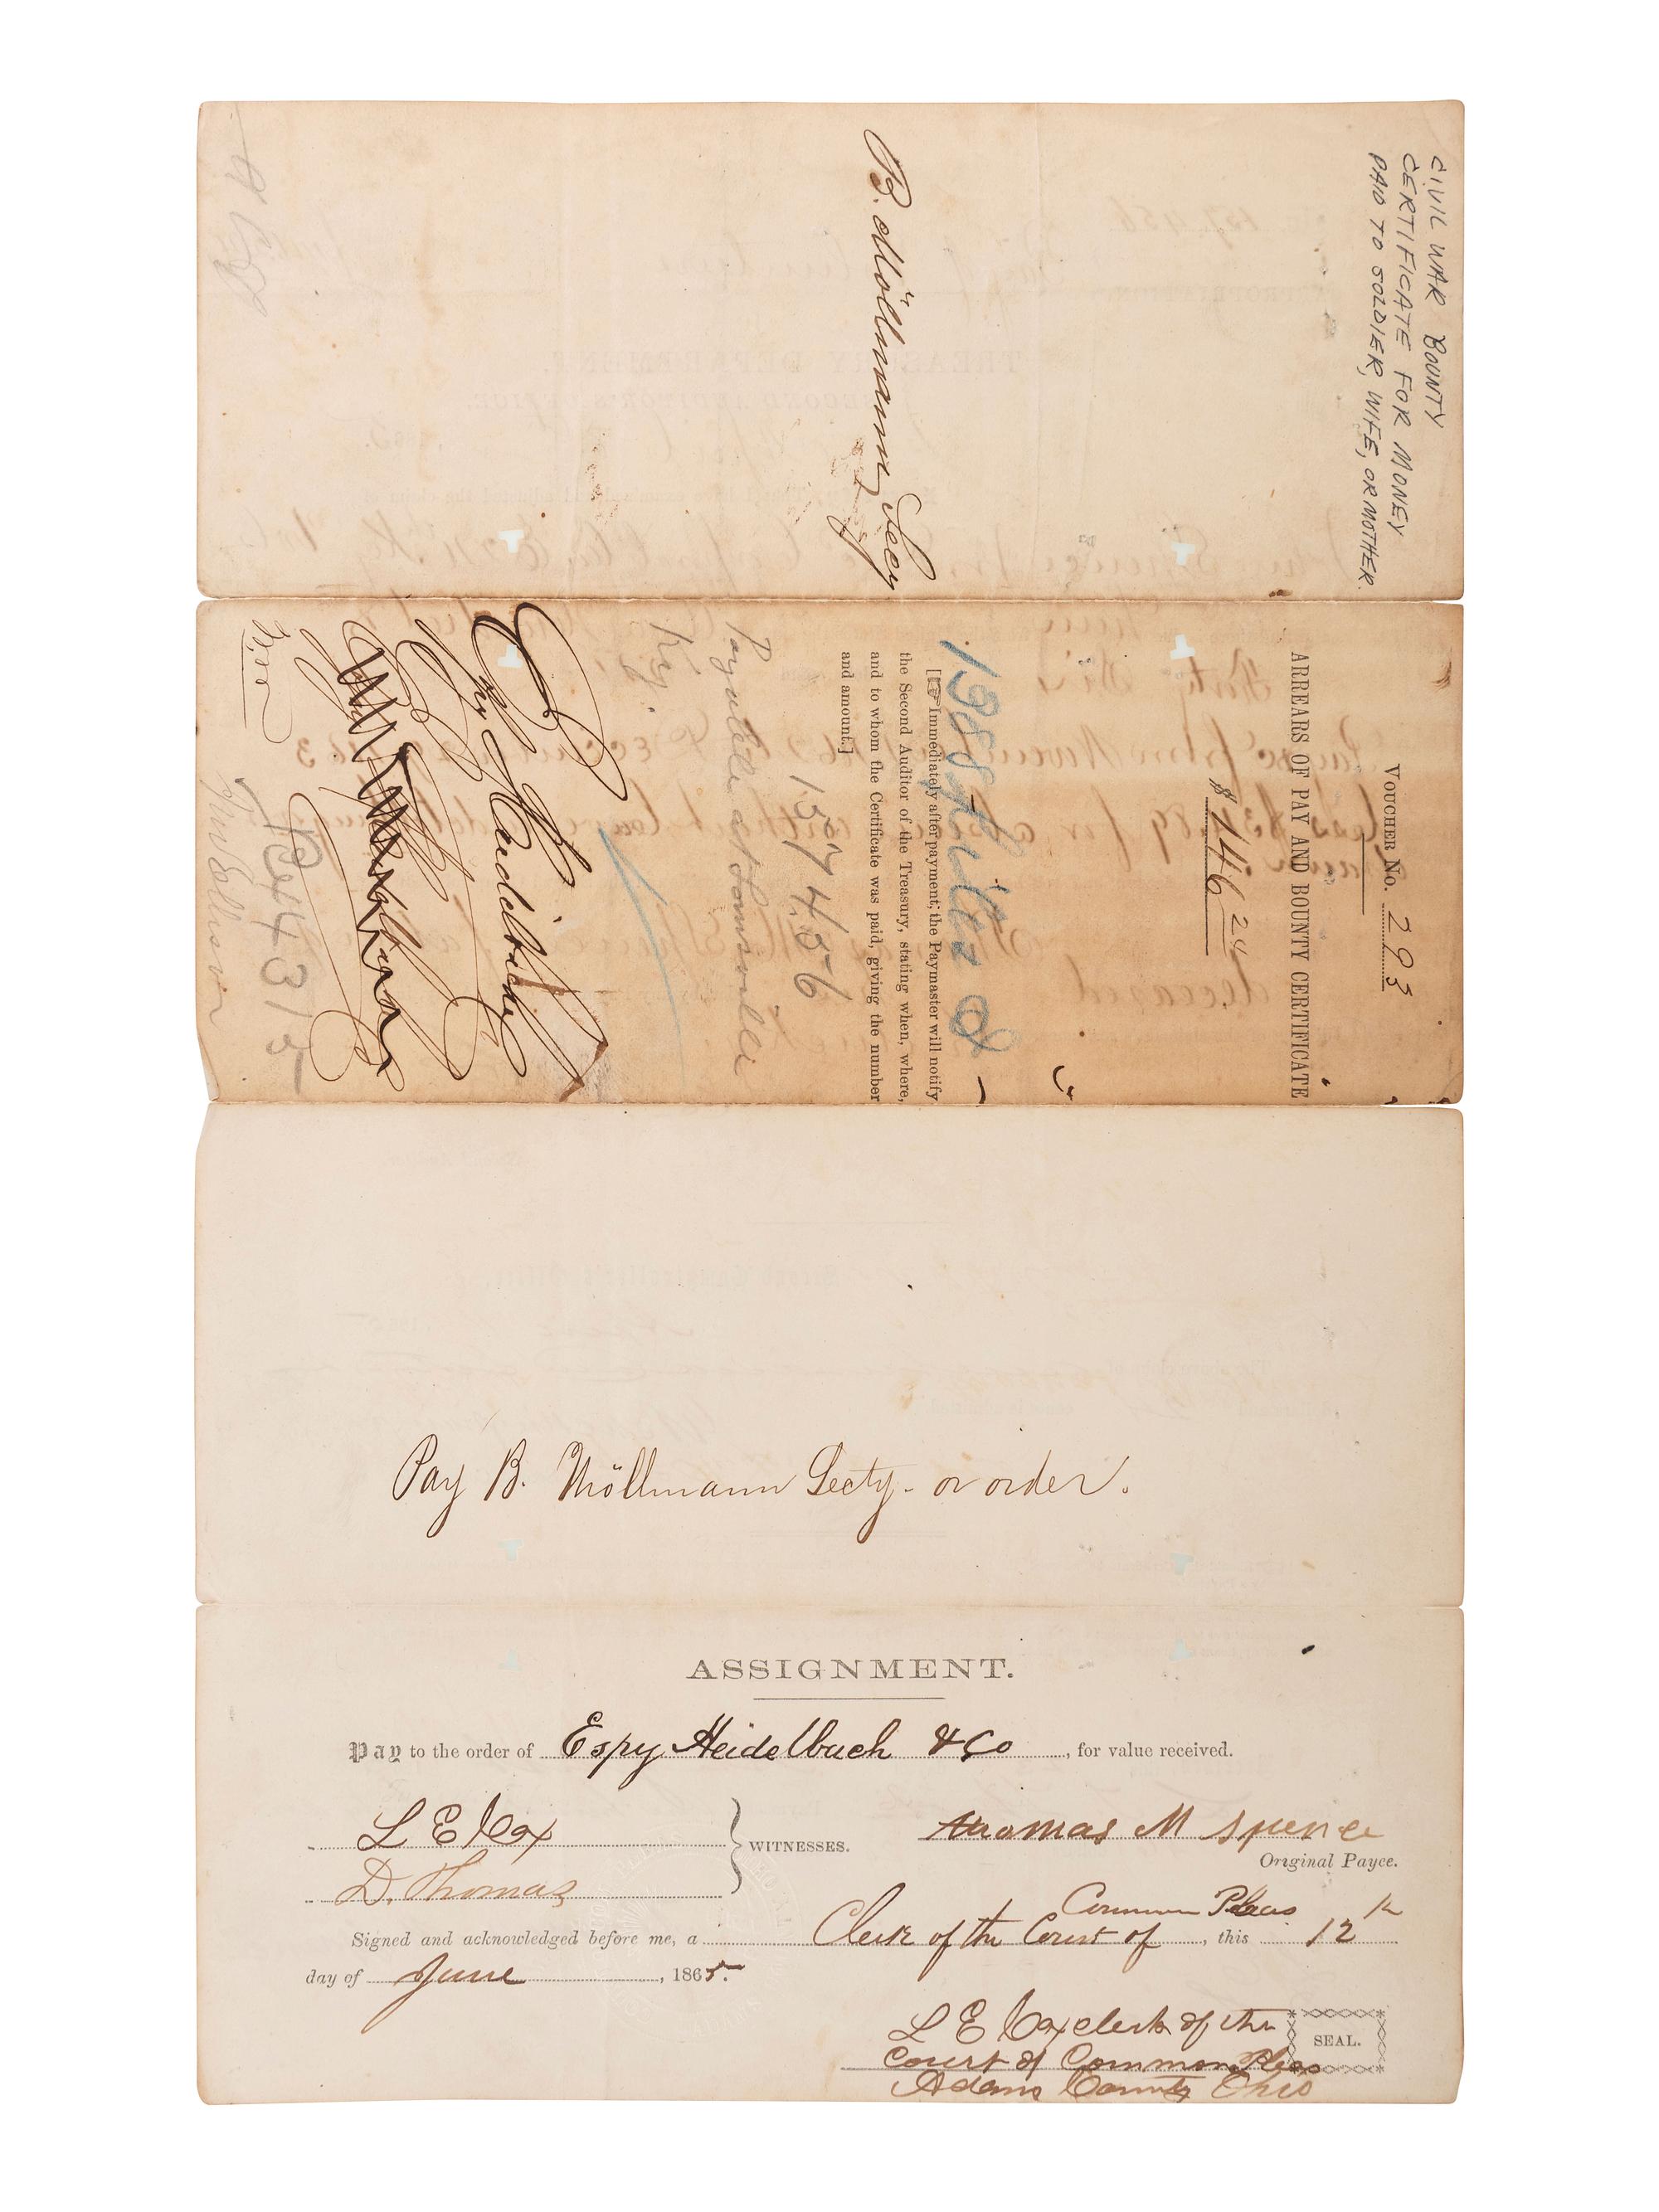 CIVIL WAR BOUNTY
CERTIFICATE FOR MONEY
PAID TO SOLDIER, WIFE, OR MOTHER.
B. Möllmann, Secy
VOUCHER No. 293
ARREARS OF PAY AND BOUNTY CERTIFICATE
$ 146 24
[☞ Immediately after payment, the Paymaster will notify
the Second Auditor of the Treasury, stating when, where,
and to whom the Certificate was paid, giving the number
and amount.]
157456
Payable at Louisville
Ky.
Espy Heidelbach
Pay B. Möllmann Secty. or order.
ASSIGNMENT.
Pay to the order of Espy Heidelbach & Co, for value received.
L E Cox
D. Thomas
WITNESSES.
Thomas M Spence
Original Payee.
Signed and acknowledged before me, a Clerk of the Court of Common Pleas, this 12th
day of June, 1865.
L E Cox clerk of the
Court of Common Pleas
Adams County Ohio
SEAL.